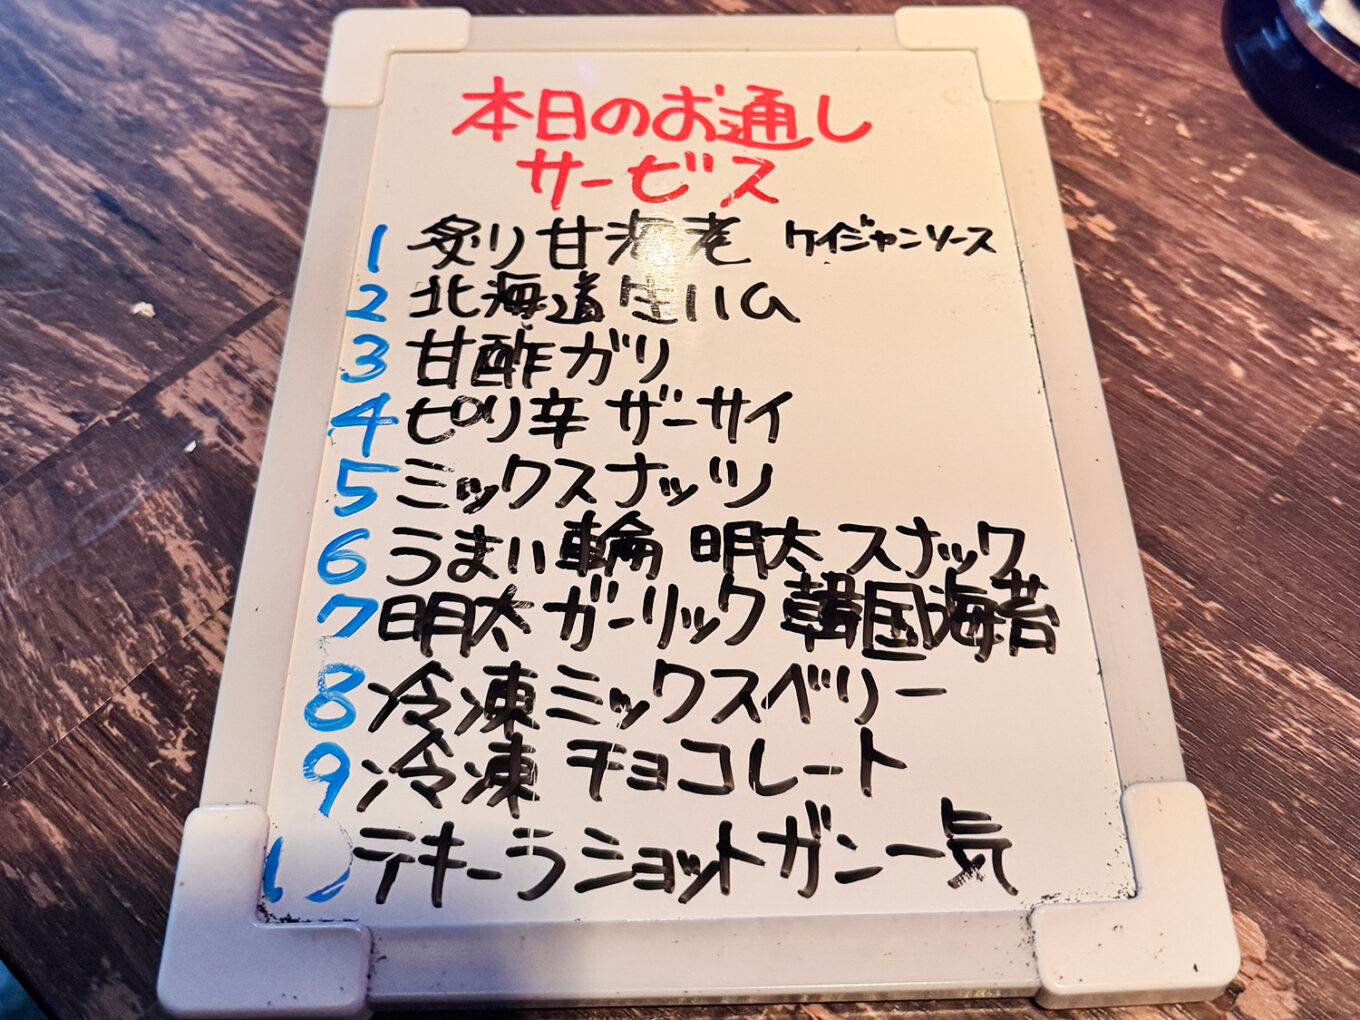 本日のお通し
サービス
1 炙り甘海老 ケイジャンソース
2 北海道生ハム
3 甘酢ガリ
4 ピリ辛 ザーサイ
5 ミックスナッツ
6 うまい輪 明太 スナック
7 明太 ガーリック 韓国海苔
8 冷凍ミックスベリー
9 冷凍 チョコレート
10 テキーラショットガン一気